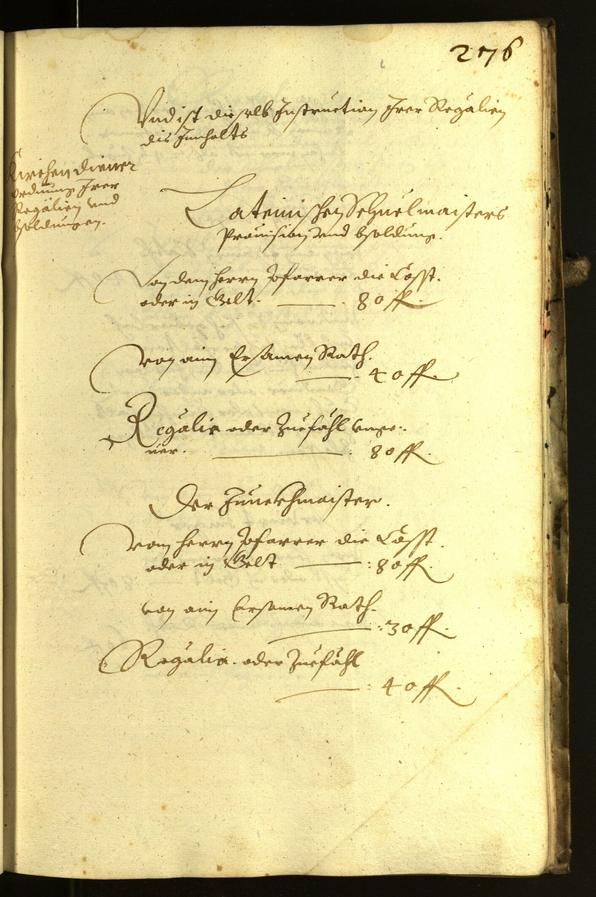 276
Vnd ist dieselb Instruction Irer Regalien
dis Innhalts
Kirchen diener
ordnung Irer
Regalien vnd
bsoldungen.
Lateinischen Schuelmaisters
Prouision vnd bsoldung.
Von dem herrn Pfarrer die Cosst.
oder in Gelt. — 80 ff.
Von aim Ersamen Rath.
— 40 ff.
Regalia oder Zuefähl vnge-
uer. — 80 ff.
Der Junckhmaister.
Vom herrn Pfarrer die Cosst.
oder in Gelt — : 80 ff.
von aim Ersamen Rath.
— : 30 ff.
Regalia. oder Zuefähl
— : 40 ff.